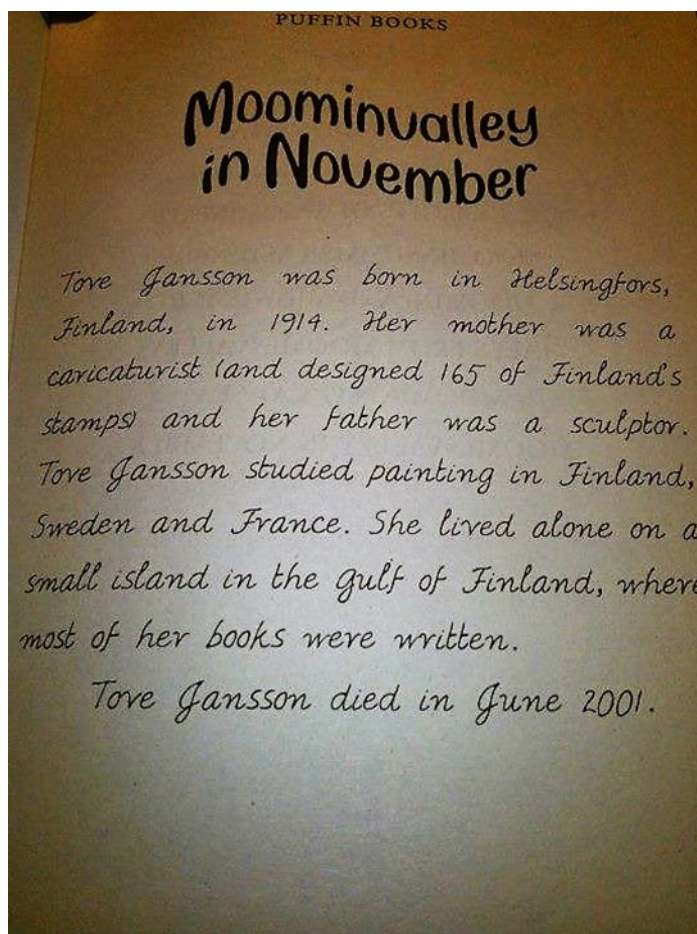 PUFFIN BOOKS
Moominvalley
in November
Tove Jansson was born in Helsingfors,
Finland, in 1914. Her mother was a
caricaturist (and designed 165 of Finland's
stamps) and her father was a sculptor.
Tove Jansson studied painting in Finland,
Sweden and France. She lived alone on a
small island in the gulf of Finland, where
most of her books were written.
Tove Jansson died in June 2001.